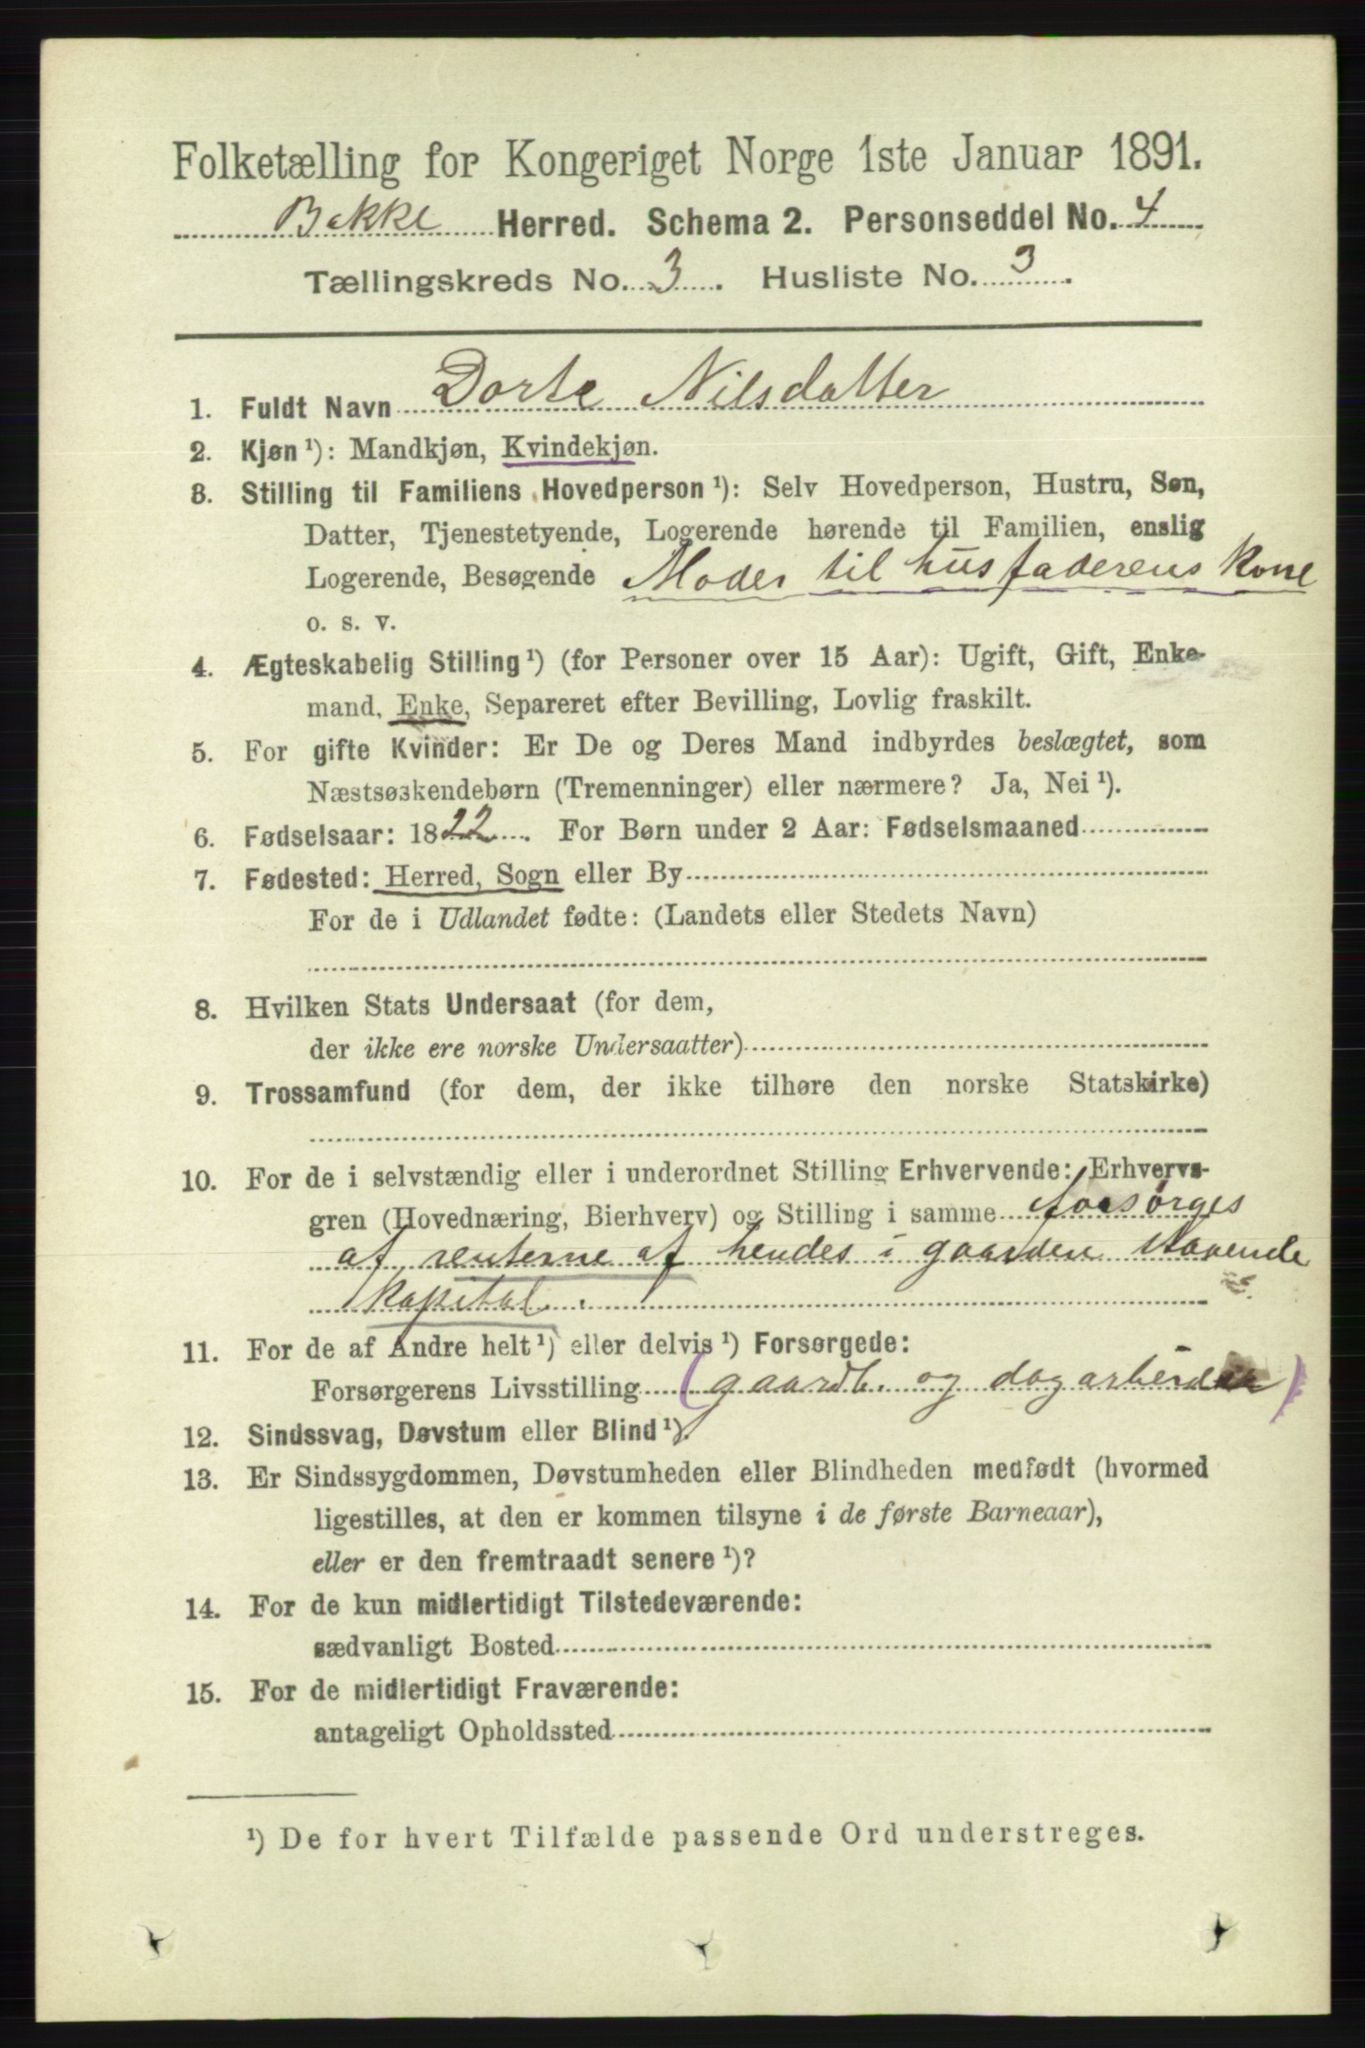 Folketælling for Kongeriget Norge 1ste Januar 1891.
Bakke Herred. Schema 2. Personseddel No. 4
Tællingskreds No. 3. Husliste No. 3.
1. Fuldt Navn Dorte Nilsdatter
2. Kjøn ¹): Mandkjøn, Kvindekjøn.
3. Stilling til Familiens Hovedperson ¹): Selv Hovedperson, Hustru, Søn,
Datter, Tjenestetyende, Logerende hørende til Familien, enslig
Logerende, Besøgende Moder til husfaderens kone
o. s. v.
4. Ægteskabelig Stilling ¹) (for Personer over 15 Aar): Ugift, Gift, Enke-
mand, Enke, Separeret efter Bevilling, Lovlig fraskilt.
5. For gifte Kvinder: Er De og Deres Mand indbyrdes beslægtet, som
Næstsøskendebørn (Tremenninger) eller nærmere? Ja, Nei ¹).
6. Fødselsaar: 1822. For Børn under 2 Aar: Fødselsmaaned
7. Fødested: Herred, Sogn eller By
For de i Udlandet fødte: (Landets eller Stedets Navn)
8. Hvilken Stats Undersaat (for dem,
der ikke ere norske Undersaatter)
9. Trossamfund (for dem, der ikke tilhøre den norske Statskirke)
10. For de i selvstændig eller i underordnet Stilling Erhvervende: Erhvervs-
gren (Hovednæring, Bierhverv) og Stilling i samme forsørges
af renterne af hendes i gaarden staaende
kapital.
11. For de af Andre helt ¹) eller delvis ¹) Forsørgede:
Forsørgerens Livsstilling (gaardb. og dagarbeider)
12. Sindssvag, Døvstum eller Blind ¹).
13. Er Sindssygdommen, Døvstumheden eller Blindheden medfødt (hvormed
ligestilles, at den er kommen tilsyne i de første Barneaar),
eller er den fremtraadt senere ¹)?
14. For de kun midlertidigt Tilstedeværende:
sædvanligt Bosted
15. For de midlertidigt Fraværende:
antageligt Opholdssted
¹) De for hvert Tilfælde passende Ord understreges.